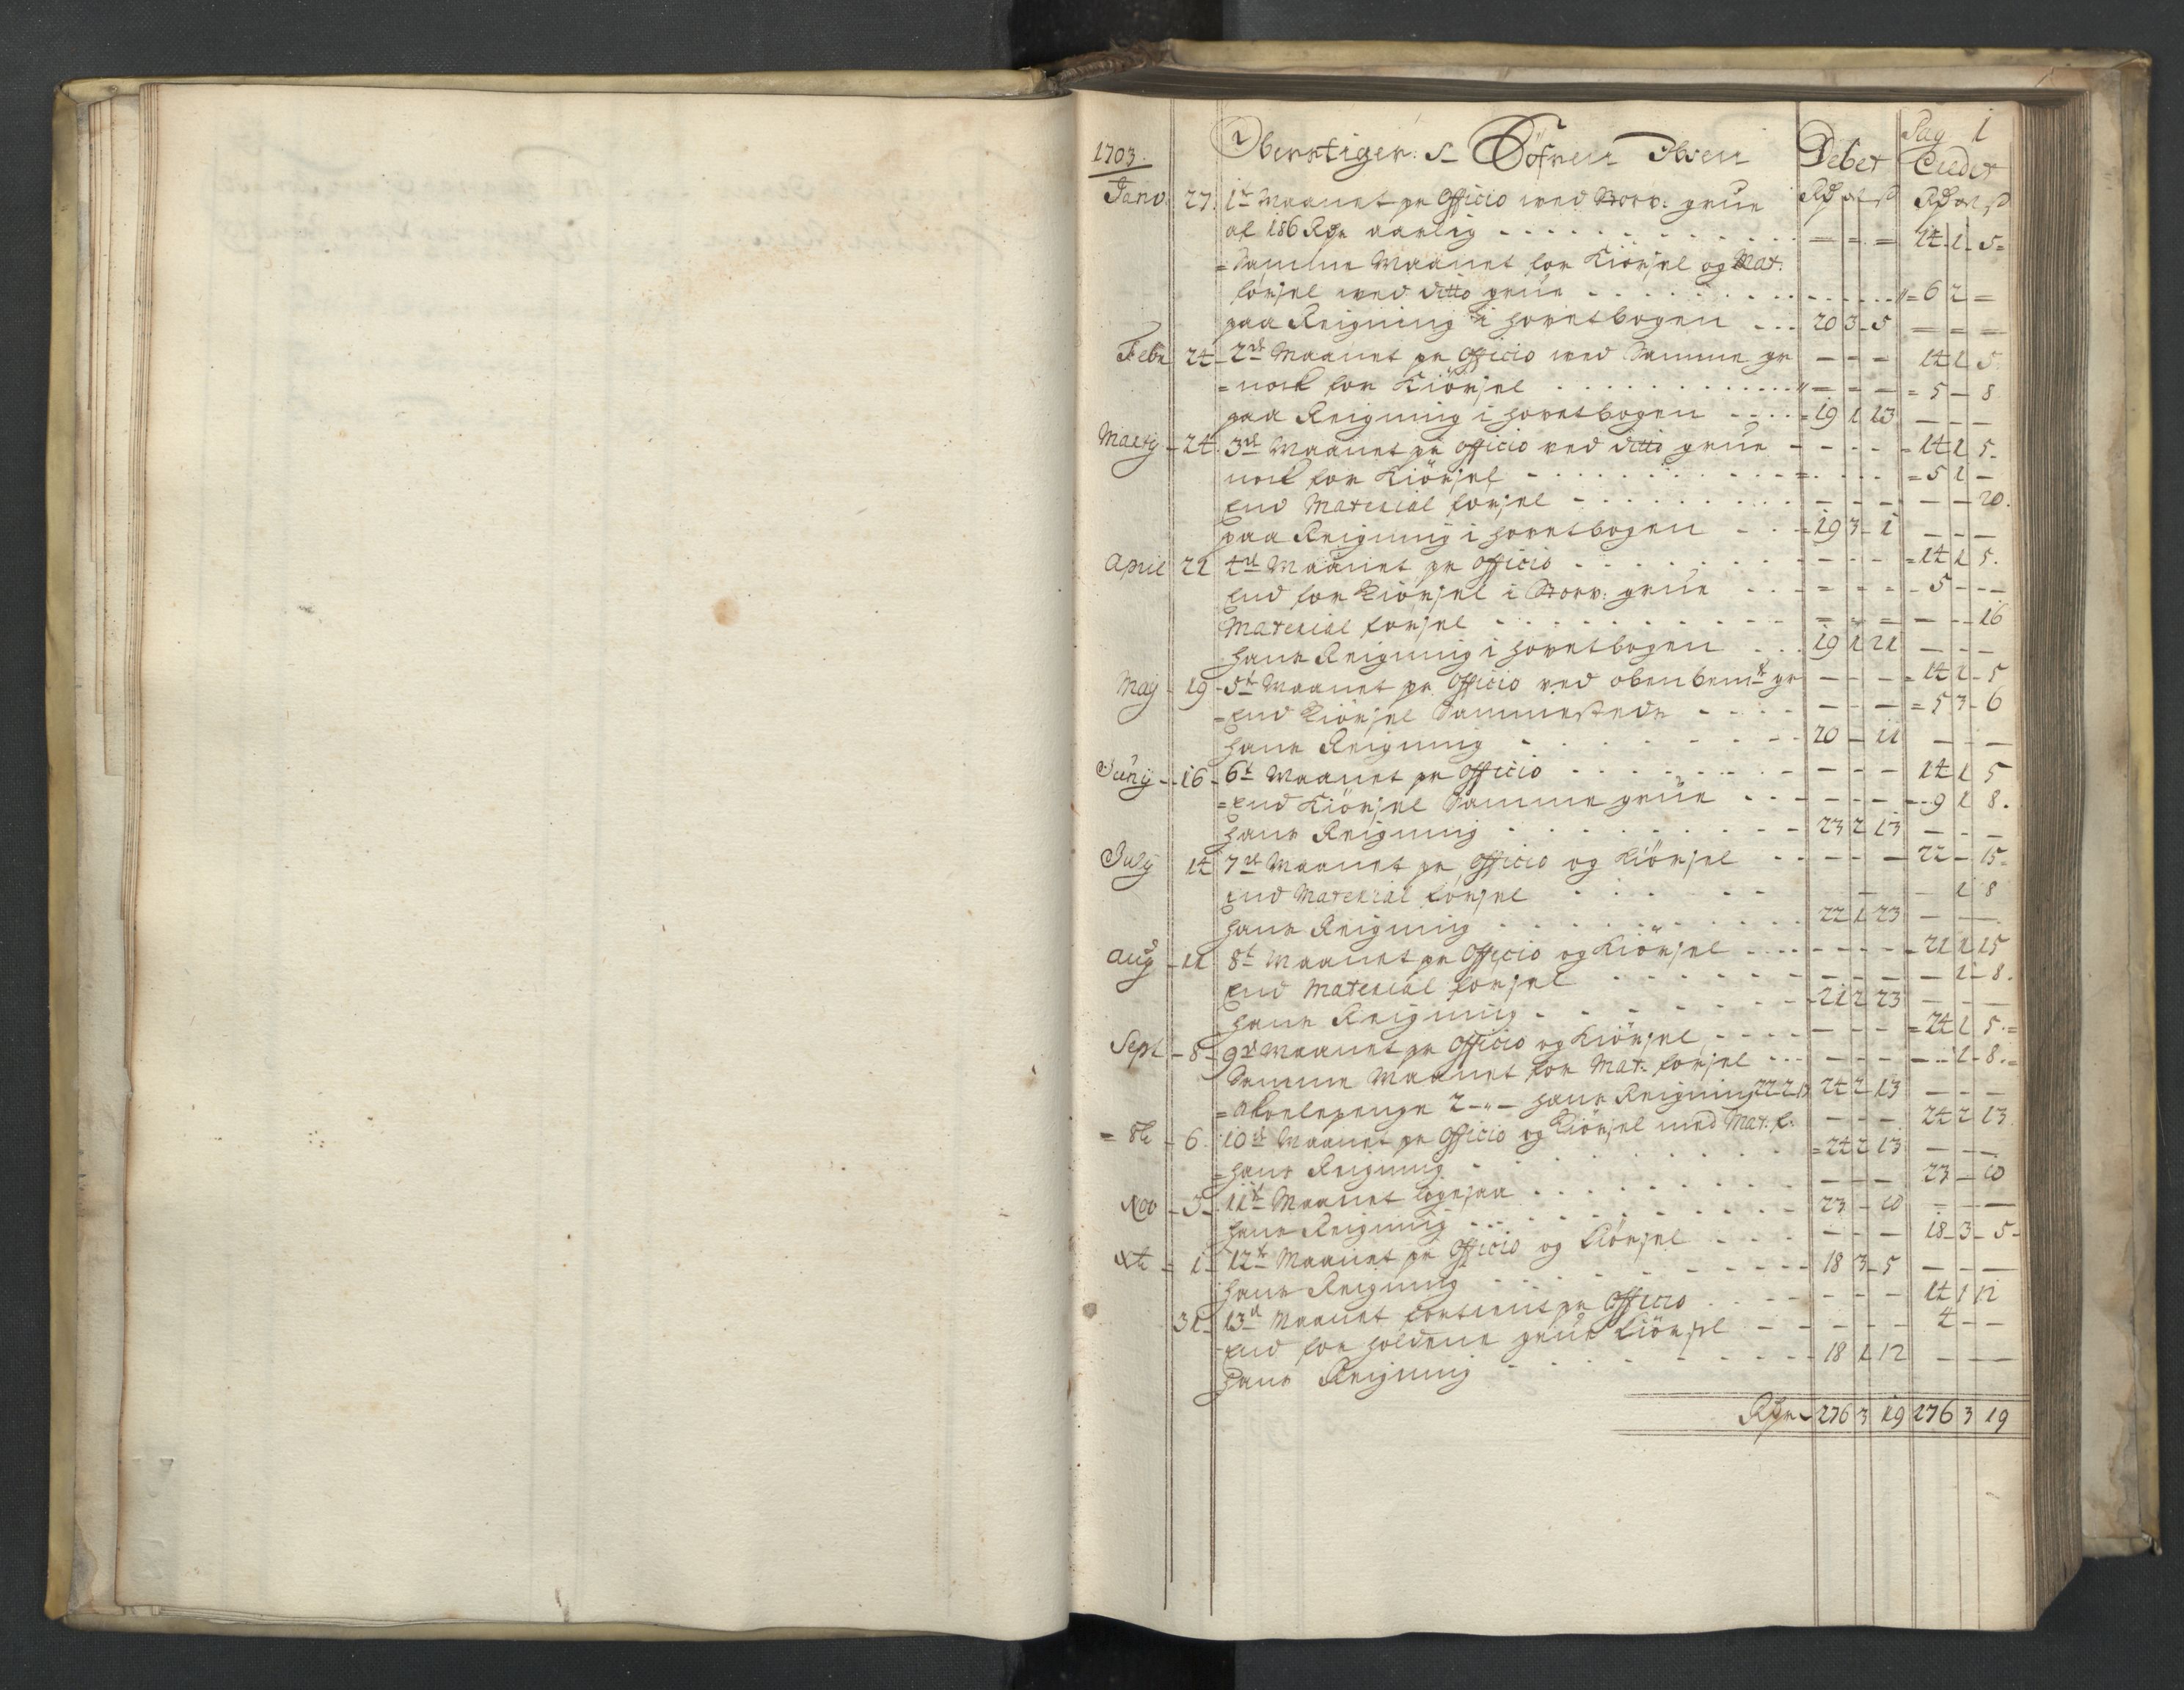 Pag 1
1703. Oberstiger: S Söfren Ibsen Debet Credit
Rdr ort s Rdr ort s
Janv. 27. 1t Maanet pr Officio wed Storv: grue
af 186 Rdr aarlig - - - 14 1 5
Samme Maanet for Kiörsel og Mat:
försel wed ditto grue 6 2 -
paa Reigning i hovetbogen 20 3 5 - - -
Febr 24 2det Maanet pr Officio wed Samme gr - - - 14 1 5
nock for Kiörsel - - - 5 - 8
paa Reigning i hovetbogen 19 1 13 - - -
Martij 24. 3de Maanet pr Officio ved ditto grue - - - 14 1 5
nock for Kiörsel 5 1 -
End Material forsel - - - - - 20.
paa Reigning i hovetbogen 19 3 1 - - -
April 21 4de Maanet pr Officio - - - 14 1 5.
End for Kiörsel i Storv: grue - - - 5 - -
Material forsel - - - - - 16
hans Reigning i hovetbogen 19 1 21 - - -
Maij 19 5t Maanet pr Officio ved obenbemt gr - - - 14 1 5
End Kiörsel Sammestede - - - 5 3 6
hans Reigning 20 - 11 - - -
Junij 16 6t Maanet pr Officio - - - 14 1 5
End Kiörsel Samme grue - - - 9 1 8.
hans Reigning 23 2 13 - - -
July 14 7de Maanet pr Officio og Kiörsel - - - 22 - 15
End Material försel - - 1 8
hans Reigning 22 1 23 - - -
Aug 11 8t Maanet pr Officio og Kiörsel - - - 21 1 15
End Material forsel - - - - 1 8.
hans Reigning 21 2 23 - - -
Sept 8 9de Maanet pr Officio og Kiörsel - - - 24 1 5
Samme Maanet for Mat: forsel - - - - 1 8
Skolepenge 2 - - hans Reigning 22 2 13 24 2 13 - - -
8br 6. 10de Maanet pr Officio og Kiörsel med Mat. f. - - - 24 2 13
hans Reigning 24 2 13 - - -
Nov 3 11t Maanet ligesaa - - - 23 - 10
hans Reigning 23 - 10 - - -
Xbr 1 12t Maanet pr Officio og Kiörsel - - - 18 3 5
hans Reigning 18 3 5 - - -
31 13de Maanet fortient pr Officio - - - 14 1 12
End for holdene grue Kiörsel - - - 4 - -
hans Reigning 18 1 12 - - -
Rdr 276 3 19 276 3 19